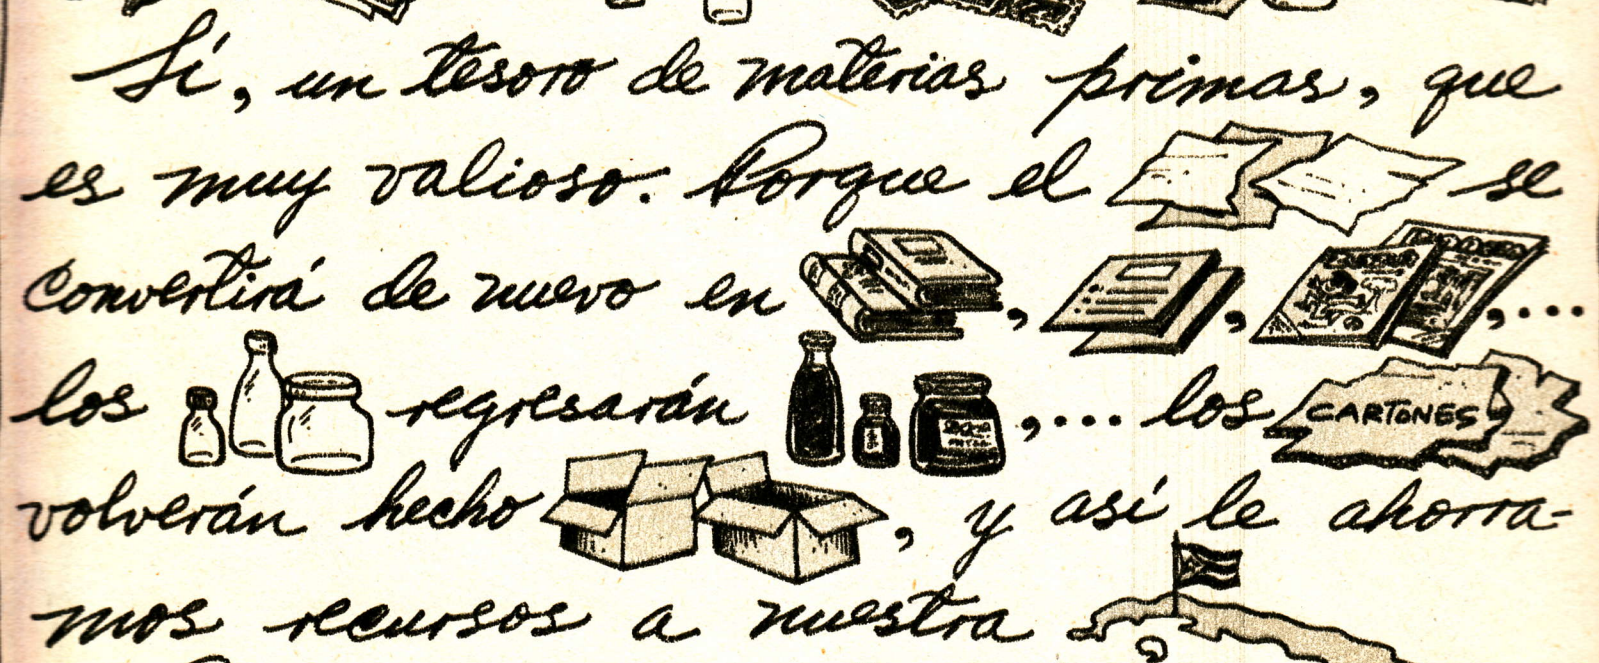 Sí, un tesoro de materias primas, que
es muy valioso. Porque el se
convertirá de nuevo en , , ,...
los regresarán ,... los CARTONES
volverán hecho , y así le ahorra-
mos recursos a nuestra